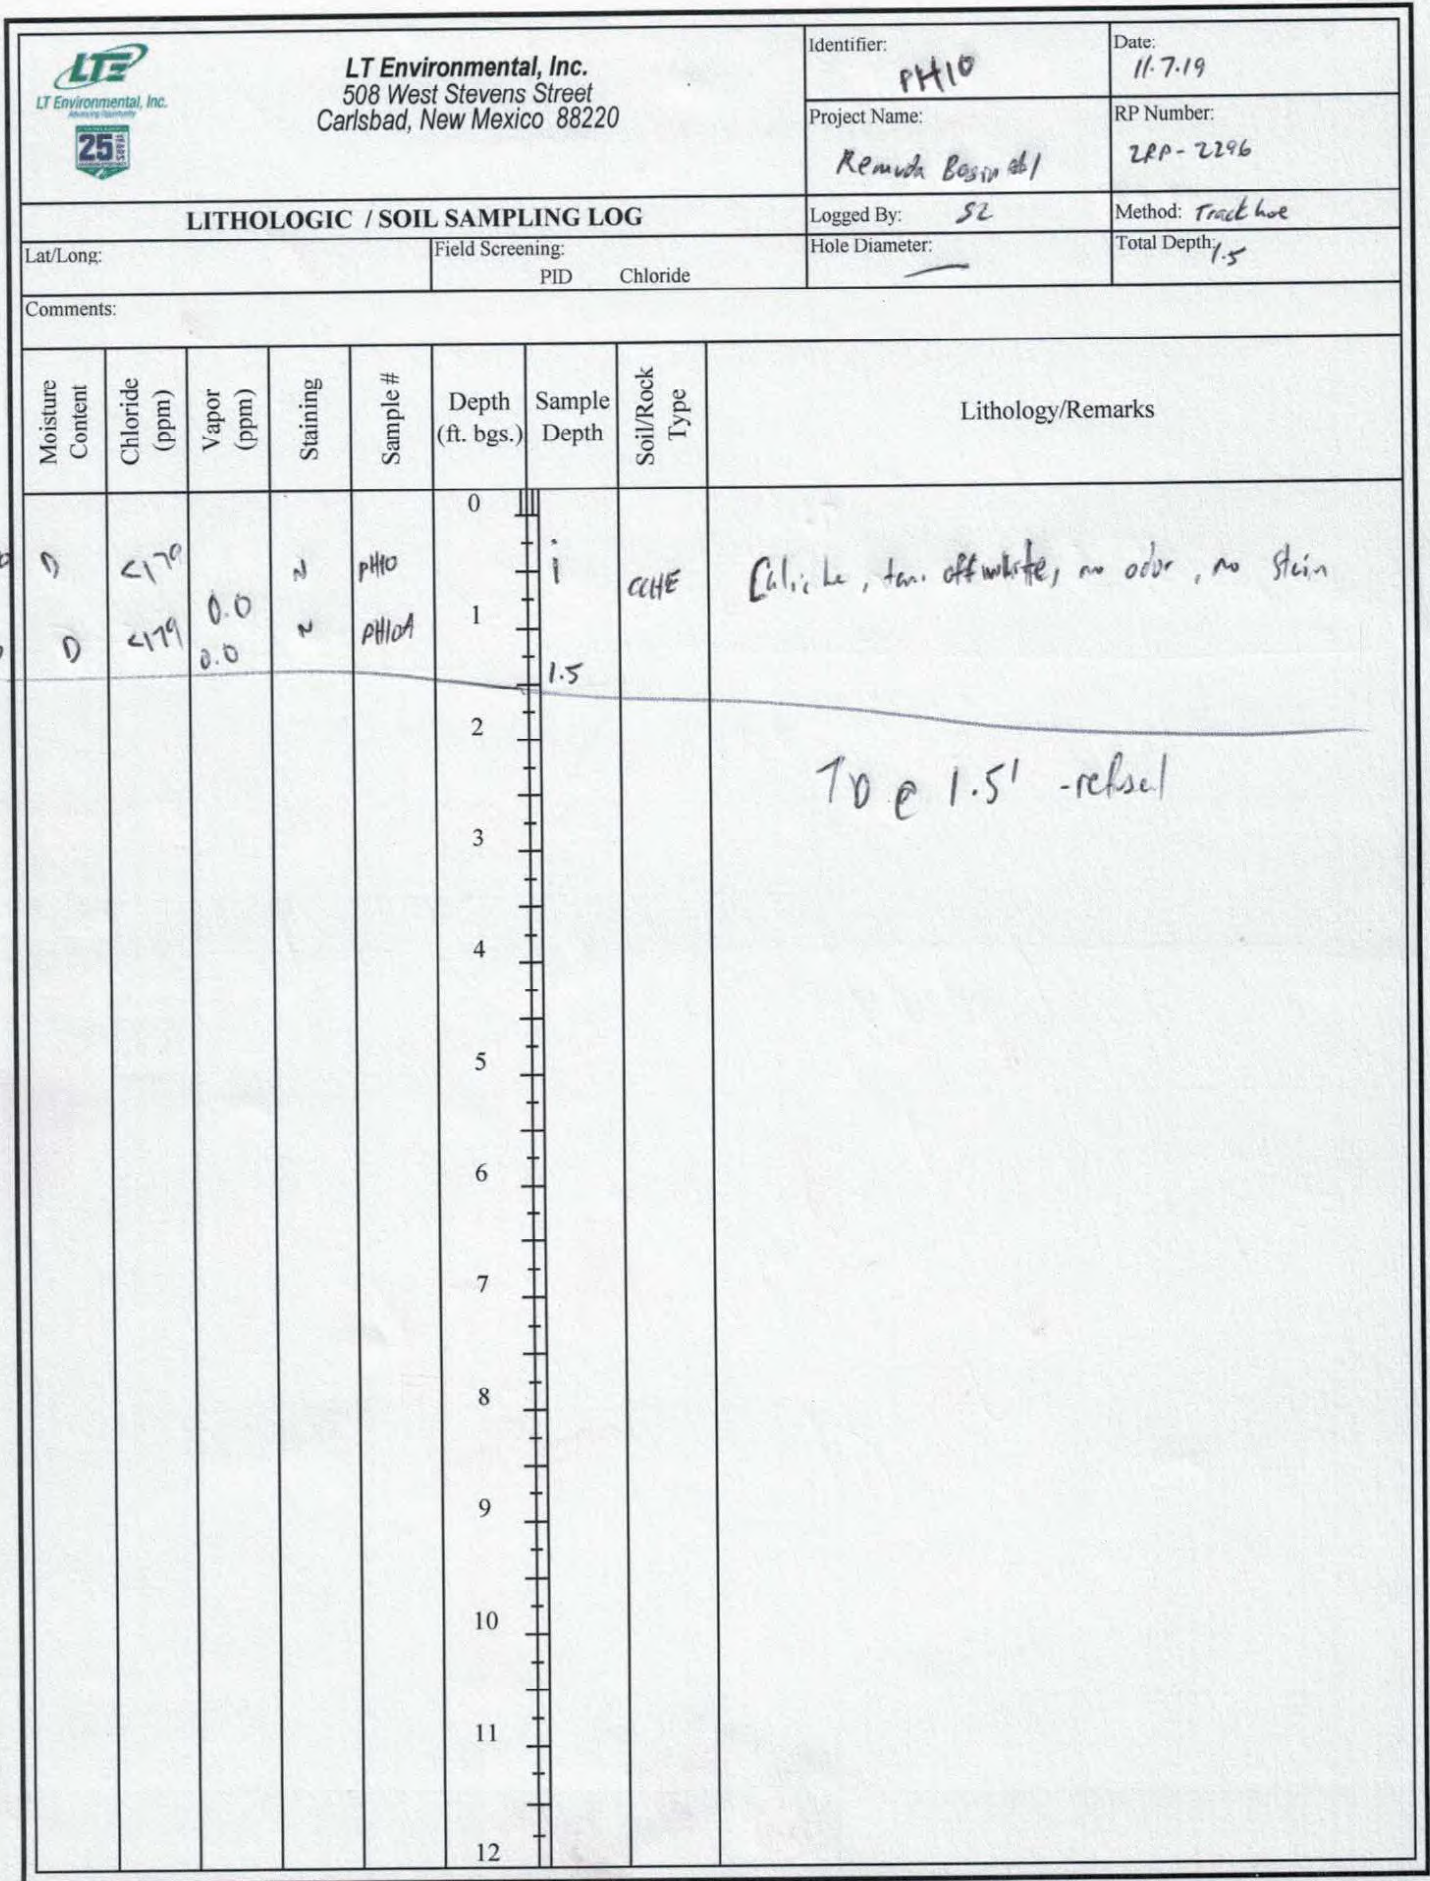 LTE
LT Environmental, Inc.
Advancing Opportunity
25 YEARS
LT Environmental, Inc.
508 West Stevens Street
Carlsbad, New Mexico 88220
Identifier: PH10
Date: 11.7.19
Project Name: Remuda Basin
RP Number: 2RP-2296
LITHOLOGIC / SOIL SAMPLING LOG
Logged By: SL
Method: Trackhoe
Lat/Long:
Field Screening:
PID Chloride
Hole Diameter: —
Total Depth: 1.5
Comments:
Moisture Content
Chloride (ppm)
Vapor (ppm)
Staining
Sample #
Depth (ft. bgs.)
Sample Depth
Soil/Rock Type
Lithology/Remarks
0
D <179 0.0 N PH10 CCHE Caliche, tan. off white, no odor, no stain
1
D <179 0.0 N PH10A 1.5
2
TD @ 1.5' -refusal
3
4
5
6
7
8
9
10
11
12